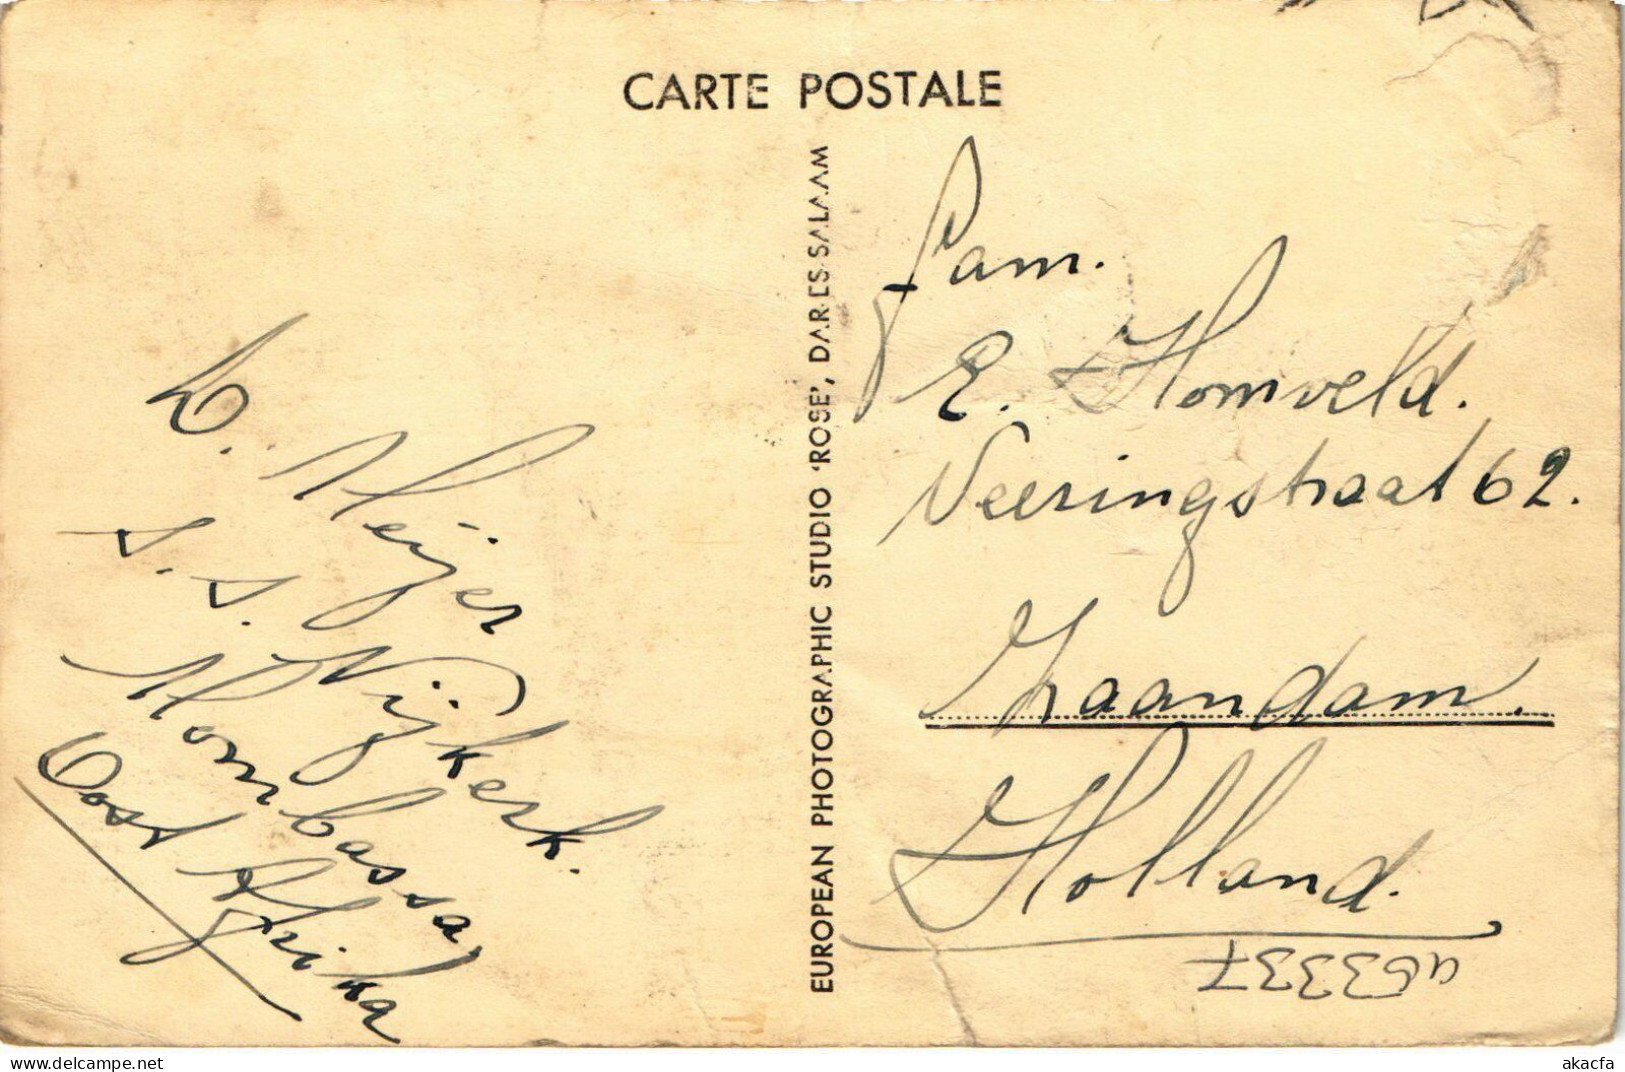 CARTE POSTALE
EUROPEAN PHOTOGRAPHIC STUDIO 'ROSE', DAR-ES-SALAAM
D. Meijer
s. s. Nijkerk.
Mombassa,
Oost Afrika
Fam.
E. Homveld.
Veeringstraat 62.
Zaandam.
Holland.
akacfa